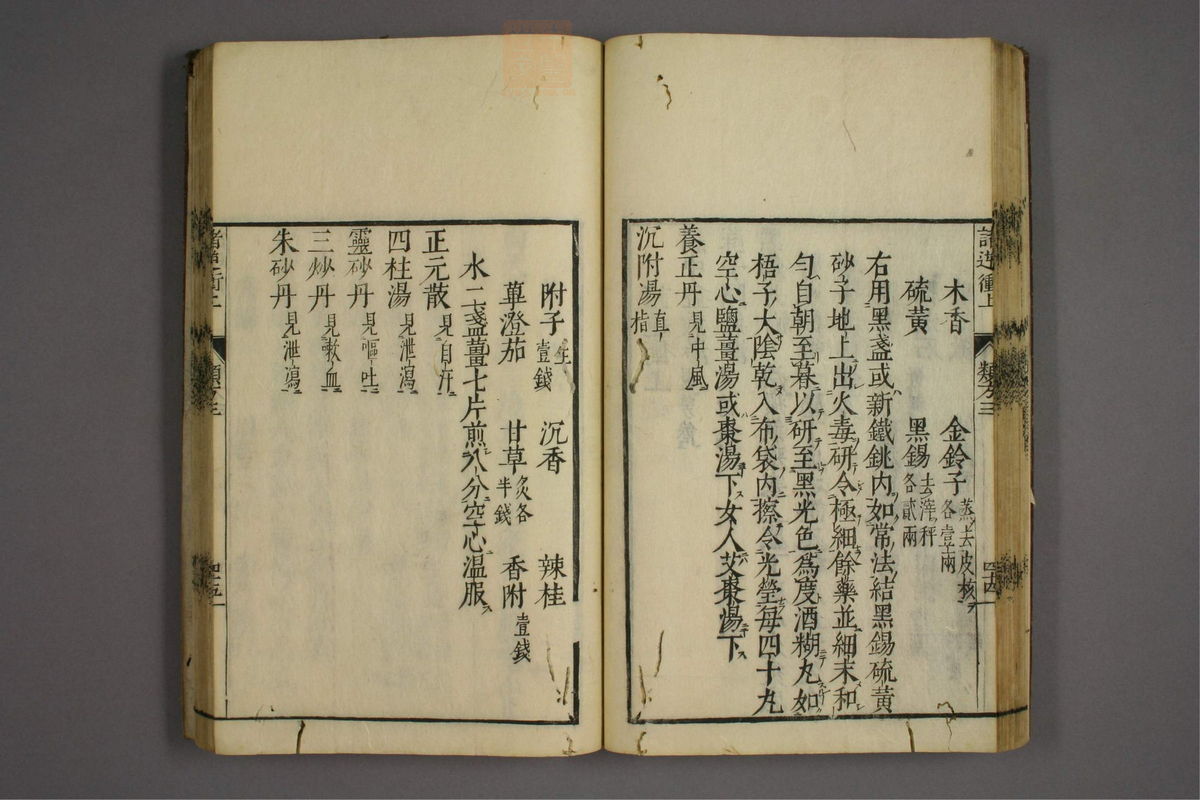 木香　金鈴子蒸去皮核各壹兩
硫黃　黑錫去滓秤各貳兩
右用黑盞或新鐵銚內如常法結黑錫硫黃
砂子地上出火毒研令極細餘藥並細末和
勻自朝至暮以研至黑光色爲度酒糊丸如
梧子大陰乾入布袋內擦令光瑩每四十丸
空心鹽薑湯或棗湯下女人艾棗湯下
養正丹見中風
沉附湯直指
附子生壹錢　沉香　辣桂
蓽澄茄　甘草炙各半錢　香附壹錢
水二盞薑七片煎八分空心溫服
正元散見自汗
四柱湯見泄瀉
靈砂丹見嘔吐
三炒丹見嗽血
朱砂丹見泄瀉